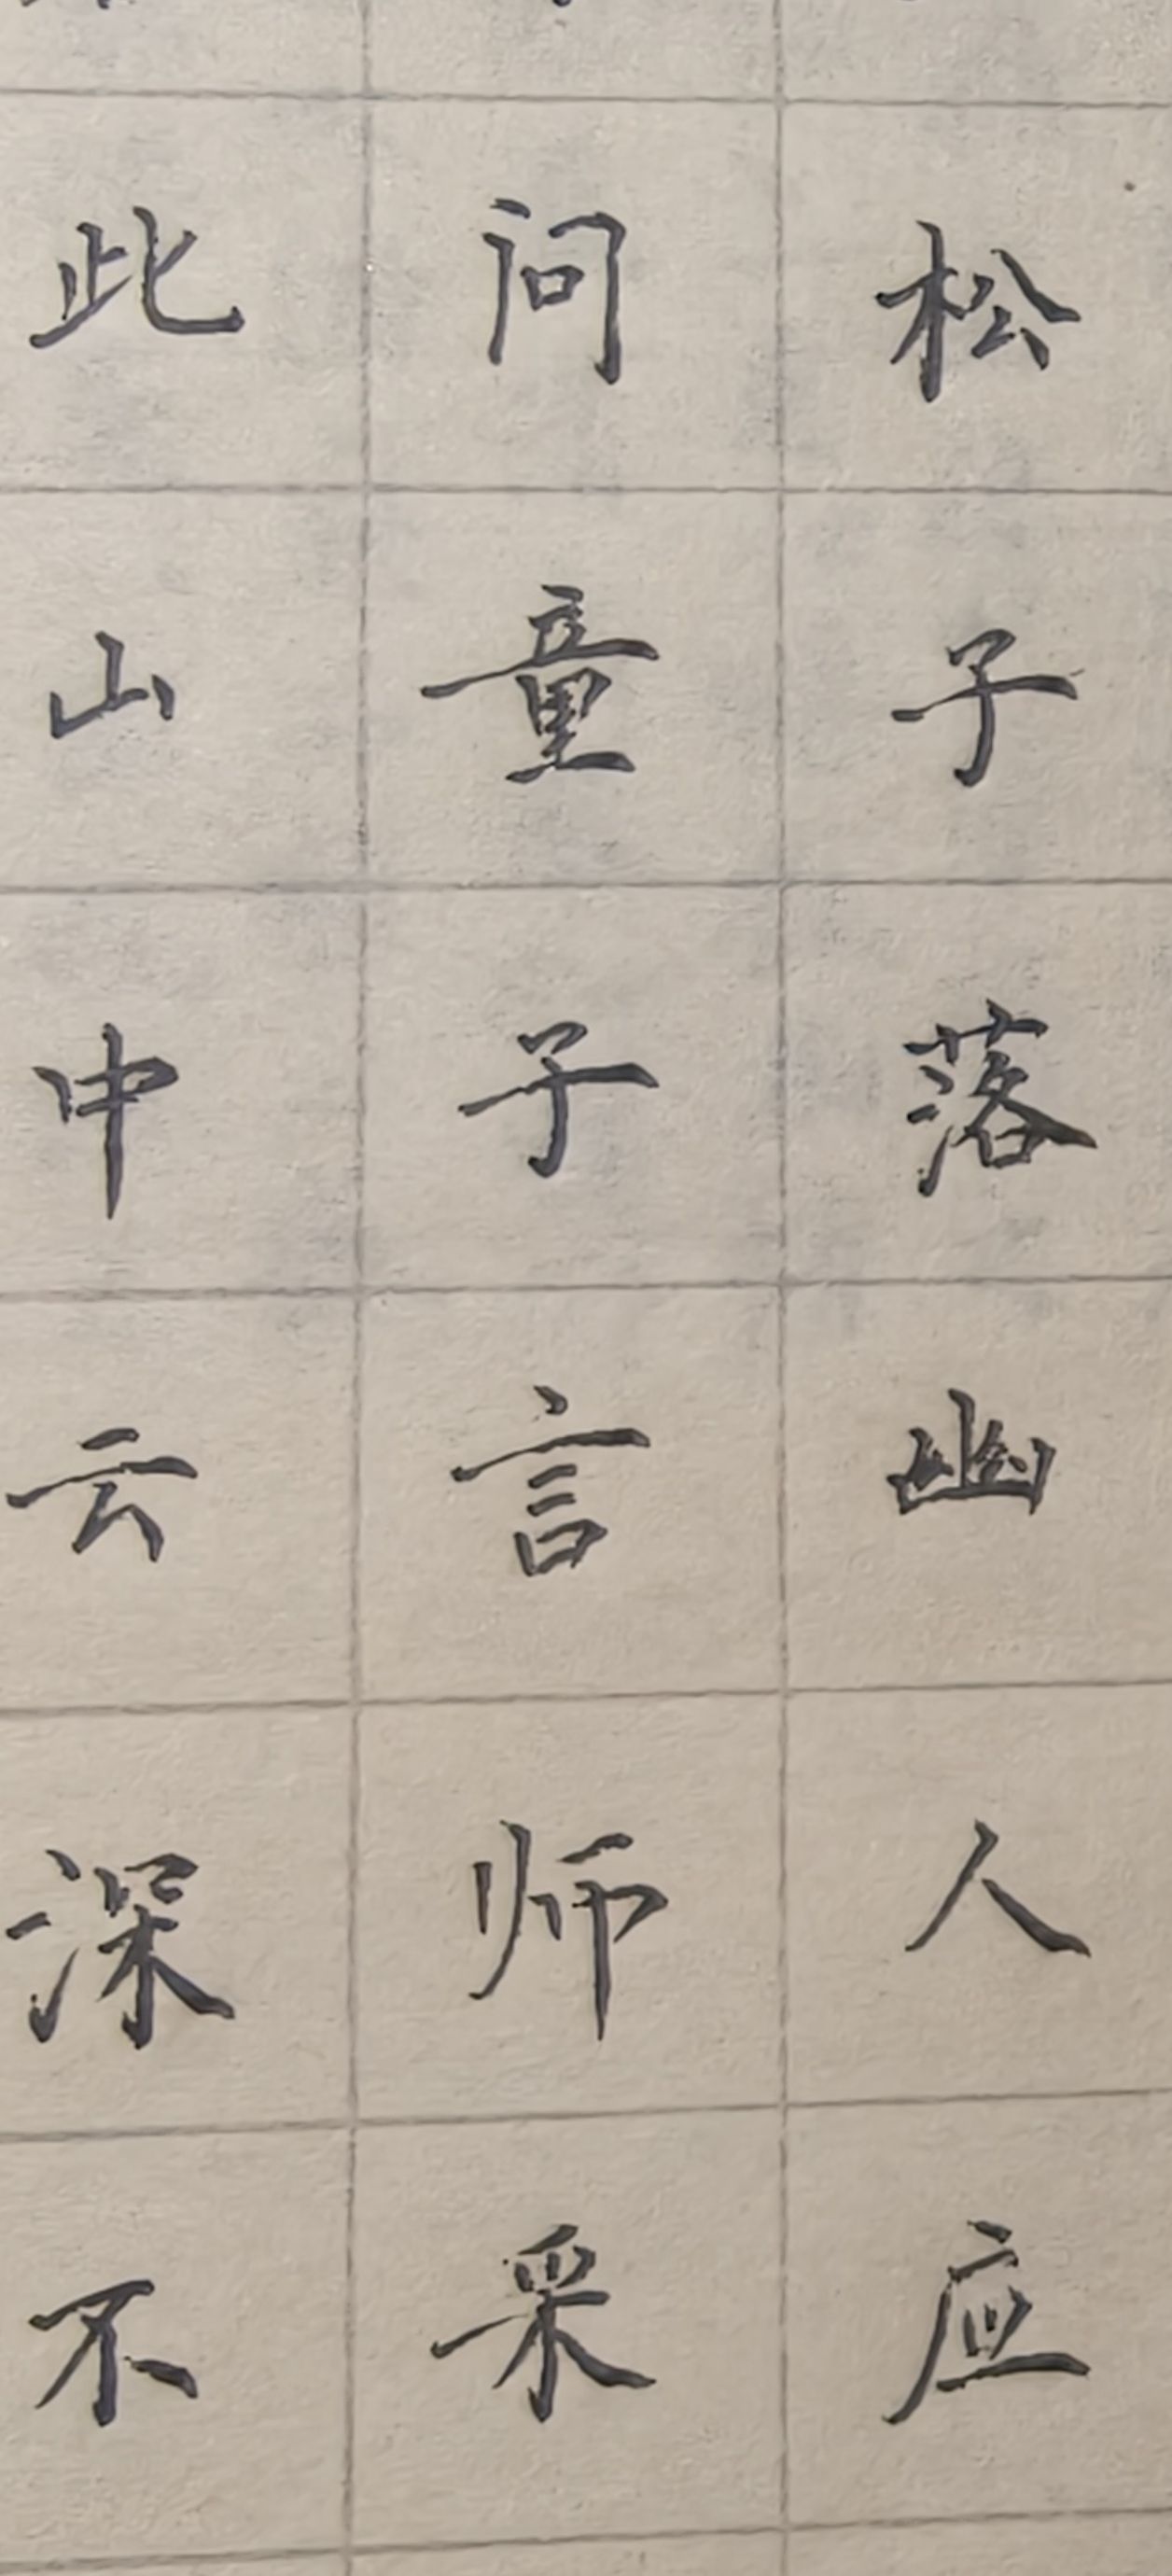 松子落幽人应
问童子言师采
此山中云深不